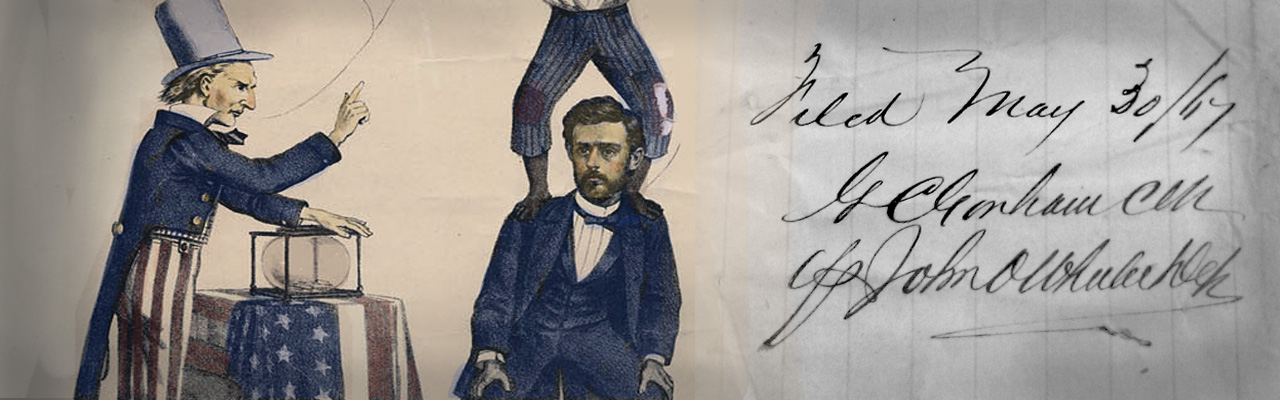 Filed May 30/67
G C Gorham Clk
By John O Wheeler Dep